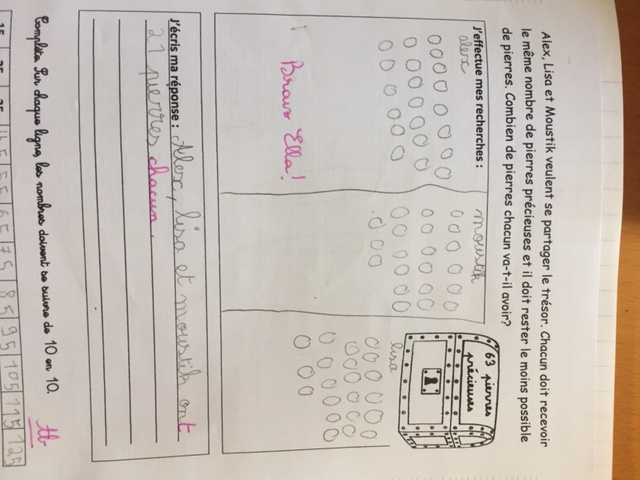 Alex, Lisa et Moustik veulent se partager le trésor. Chacun doit recevoir
le même nombre de pierres précieuses et il doit rester le moins possible
de pierres. Combien de pierres chacun va-t-il avoir?
J'effectue mes recherches :
alex
moustik
lisa
63 pierres
précieuses
Bravo Ella!
J'écris ma réponse : Alex, lisa et moustik ont
21 pierres chacun.
Complète. Sur chaque ligne, les nombres doivent se suivre de 10 en 10.
tb
15 25 35 45 55 65 75 85 95 105 115 125